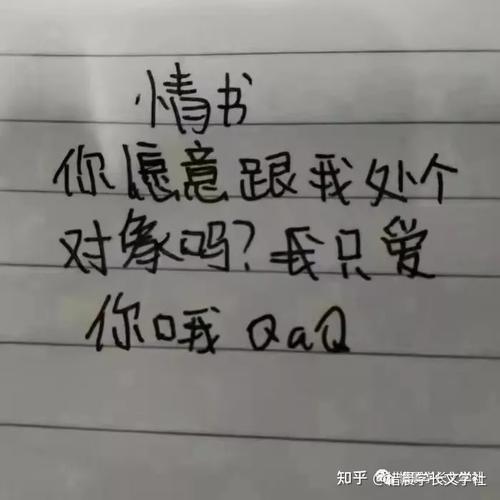 情书
你愿意跟我处个
对象吗?我只爱
你哦 QaQ
知乎 @猎晨学长文学社